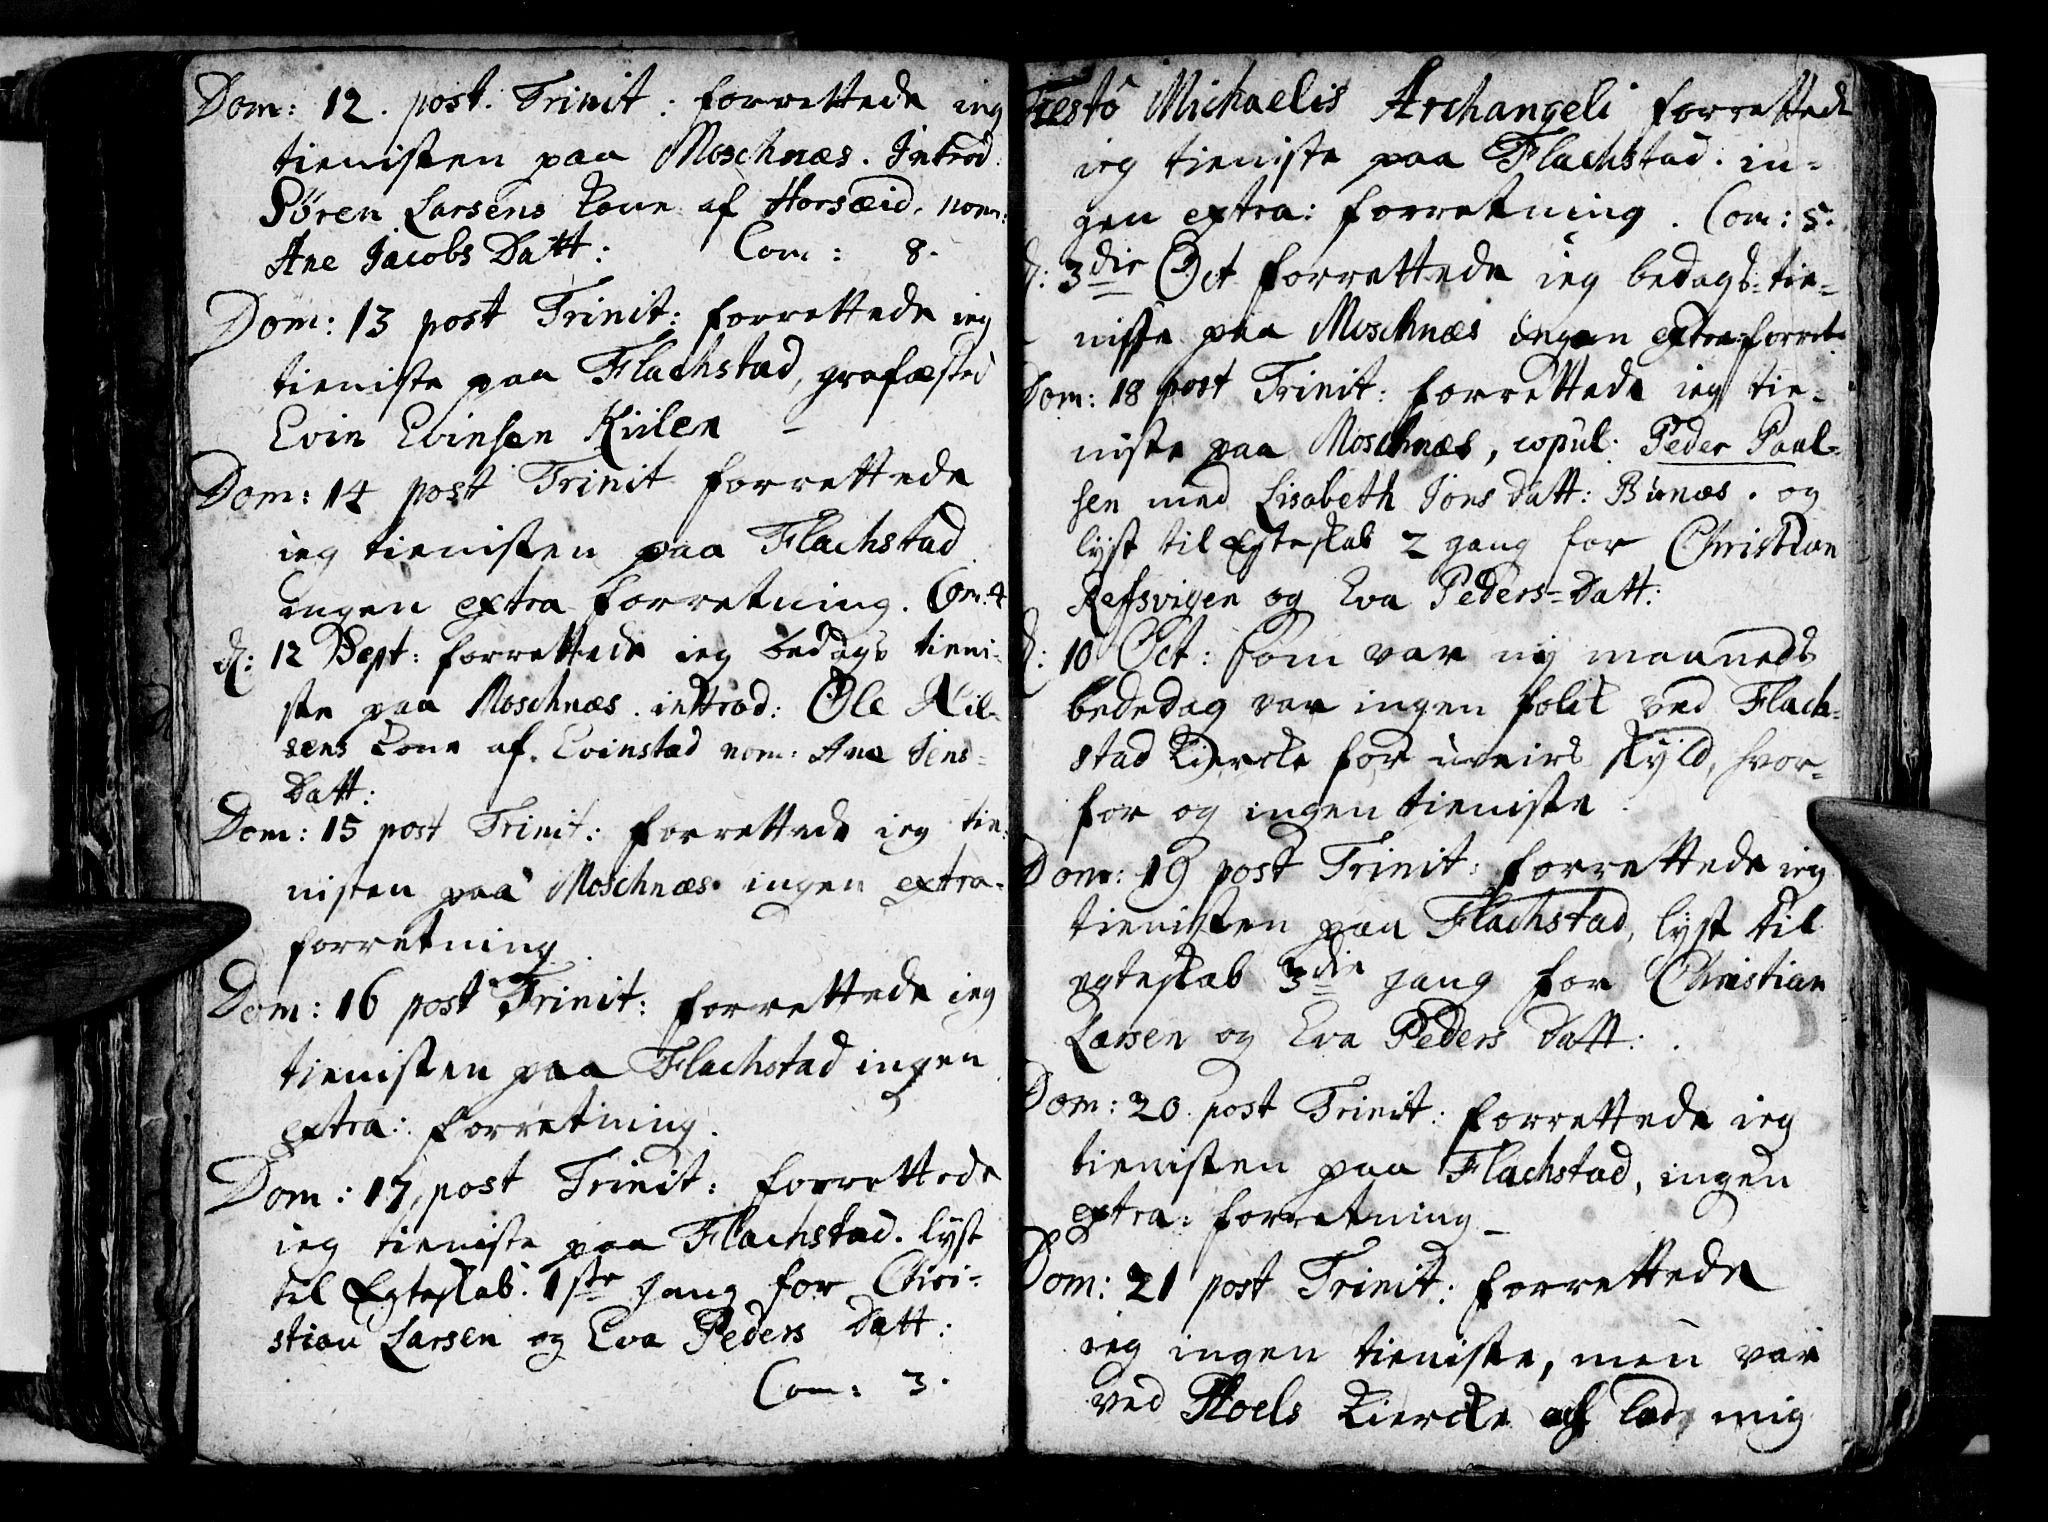 Dom: 12. post. Trinit: forrettede ieg
tienisten paa Moschnæs. Introd:
Søren Larsens Kone af Horsæid, nom:
Ane Jacobs Datt: Com: 8.
Dom: 13 post Trinit: forrettede ieg
tieniste paa Flachstad, grafæsted
Evin Evinsen Kiilen –
Dom: 14 post Trinit forrettede
ieg tienisten paa Flachstad
ingen extra forretning. Com: 4
d: 12 Sept: forrettede ieg bedags tieni-
ste paa Moschnæs. inttrod: Ole Nil-
sens Kone af. Evinstad nom: Ane Jens-
Datt:
Dom: 15 post Trinit: forrettede ieg tie-
nisten paa Moschnæs. ingen extra-
forretning.
Dom: 16 post Trinit: forrettede ieg
tienisten paa Flachstad ingen
extra: forretning.
Dom: 17, post Trinit: forrettede
ieg tieniste paa Flachstad. lyst
til Egteskab. 1ste gang for Chri-
stian Larsen og Eva Peders Datt:
Com: 3.
Festo Michaelis Archangeli forrettede
ieg tieniste paa Flachstad. in-
gen extra: forretning. Com: 5.
d: 3die Oct forrettede ieg bedags-tie-
niste paa Moschnæs ingen extra forret:
Dom: 18 post Trinit: forrettede ieg tie-
niste paa Moschnæs, copul: Peder Paal-
sen med Lisabeth Jons datt: Bunæs. og
lyst til Egteskab 2 gang for Christian
Reffsvigen og Eva Peders-Datt:
d: 10 Oct: som var ny maaneds
bededag var ingen folck ved Flach-
stad Kiercke for uveirs skyld, hvor-
for og ingen tieniste.
Dom: 19 post Trinit: forrettede ieg
tienisten paa Flachstad, lyst til
egteskab 3die gang for Christian
Larsen og Eva Peders Datt:
Dom: 20 post Trinit: forrettede ieg
tienisten paa Flachstad, ingen
extra: forretning –
Dom: 21 post Trinit: forrettede
ieg ingen tieniste, men var
ved Hoels Kiercke lod mig